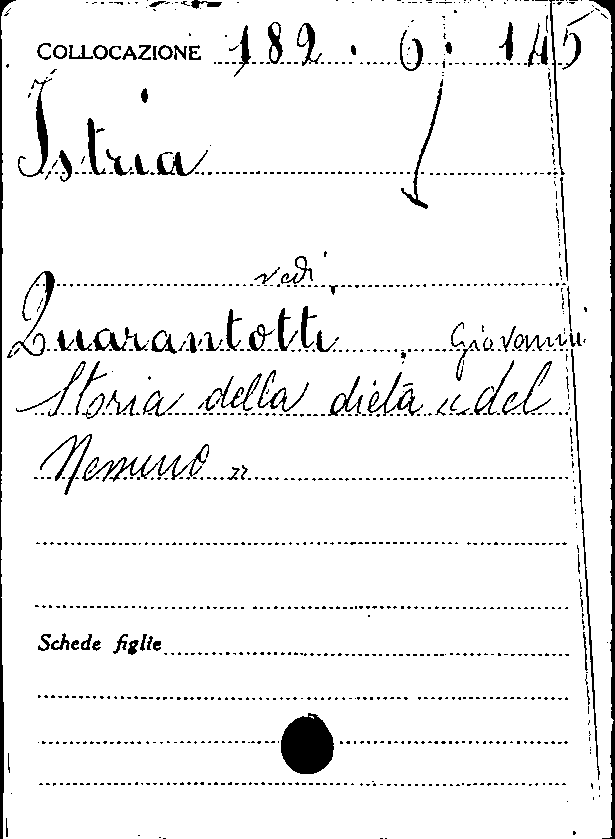 COLLOCAZIONE 182. 6. 145
Istria
vedi
Quarantotti, Giovanni
Storia della dieta "del
Nessuno"
Schede figlie